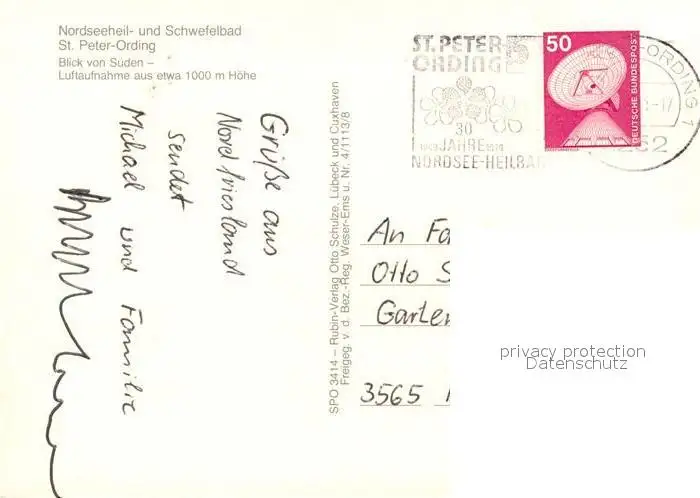 Nordseeheil- und Schwefelbad
St. Peter-Ording
Blick von Süden –
Luftaufnahme aus etwa 1000 m Höhe
Grüße aus
Nordfriesland
sendet
Michael und Familie
SPO 3414 – Rubin-Verlag Otto Schulze, Lübeck und Cuxhaven
Freigeg. v. d. Bez.-Reg. Weser-Ems u. Nr. 4/1113/8
ST. PETER-
ORDING
30
JAHRE
NORDSEE-HEILBAD
50
DEUTSCHE BUNDESPOST
-ORDING 1
An Fa
Otto S
Garten
3565
privacy protection
Datenschutz